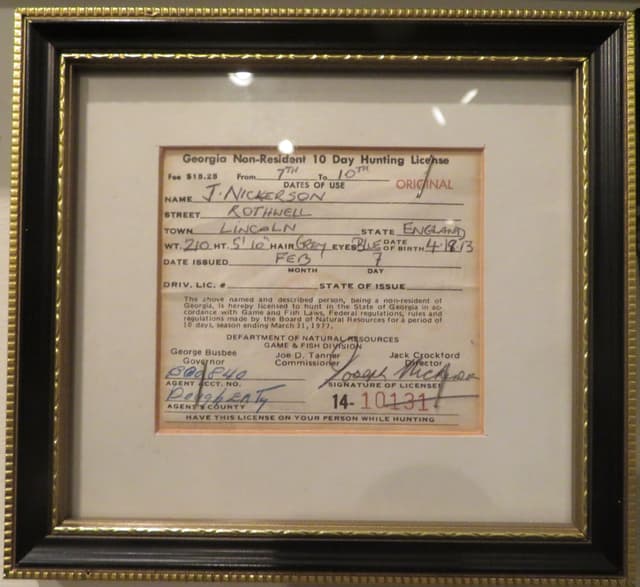 Georgia Non-Resident 10 Day Hunting License
Fee $15.25 From 7TH To 10TH
DATES OF USE ORIGINAL
NAME J. NICKERSON
STREET ROTHWELL
TOWN LINCOLN STATE ENGLAND
WT. 210 HT. 5' 10" HAIR GREY EYES BLUE DATE OF BIRTH 4-19-13
DATE ISSUED FEB 7
MONTH DAY
DRIV. LIC. # STATE OF ISSUE
The above named and described person, being a non-resident of
Georgia, is hereby licensed to hunt in the State of Georgia in ac-
cordance with Game and Fish Laws, Federal regulations, rules and
regulations made by the Board of Natural Resources for a period of
10 days, season ending March 31, 1977.
DEPARTMENT OF NATURAL RESOURCES
GAME & FISH DIVISION
George Busbee Joe D. Tanner Jack Crockford
Governor Commissioner Director
Joseph Nickerson
AGENT ACCT. NO. SIGNATURE OF LICENSEE
DougherTy 14- 10131
AGENT'S COUNTY
HAVE THIS LICENSE ON YOUR PERSON WHILE HUNTING